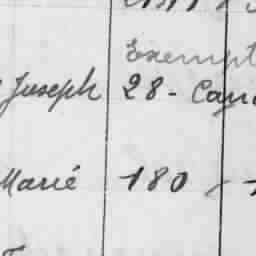 Exempt
Joseph 28 - Can
Marié 180